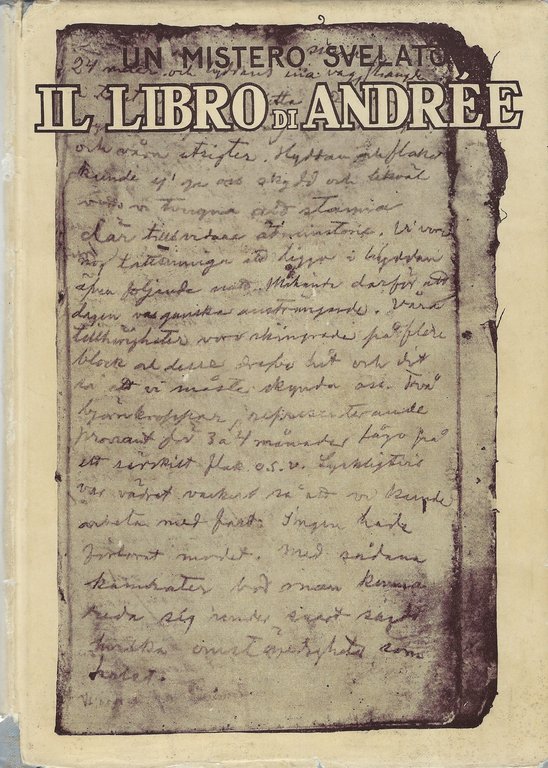 UN MISTERO SVELATO
IL LIBRO DI ANDRÉE
24 meter och hyddans ena vägg hängde
och våra utsigter. Hyddan och flaket
kunde ej ge oss skydd och likväl
voro vi tvungna att stanna
där tillsvidare åtminstone. Vi voro
nog lättsinniga att ligga i hyddan
äfven följande natt. Måhända därför att
dagen var ganska ansträngande. Våra
tillhörigheter voro skingrade på flere
block och dessa drefvo hit och dit
så att vi måste skynda oss. Två
björnkroppar, representerande
proviant för 3 a 4 månader lågo på
ett särskildt flak o.s.v. Lyckligtvis
var vädret vackert så att vi kunde
arbeta med fart. Ingen hade
förlorat modet. Med sådana
kamrater bör man kunna
reda sig under snart sagdt
hvilka omständigheter som
helst.